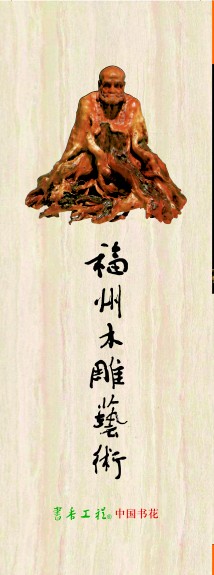 福州木雕藝術
書香工程 中国书花